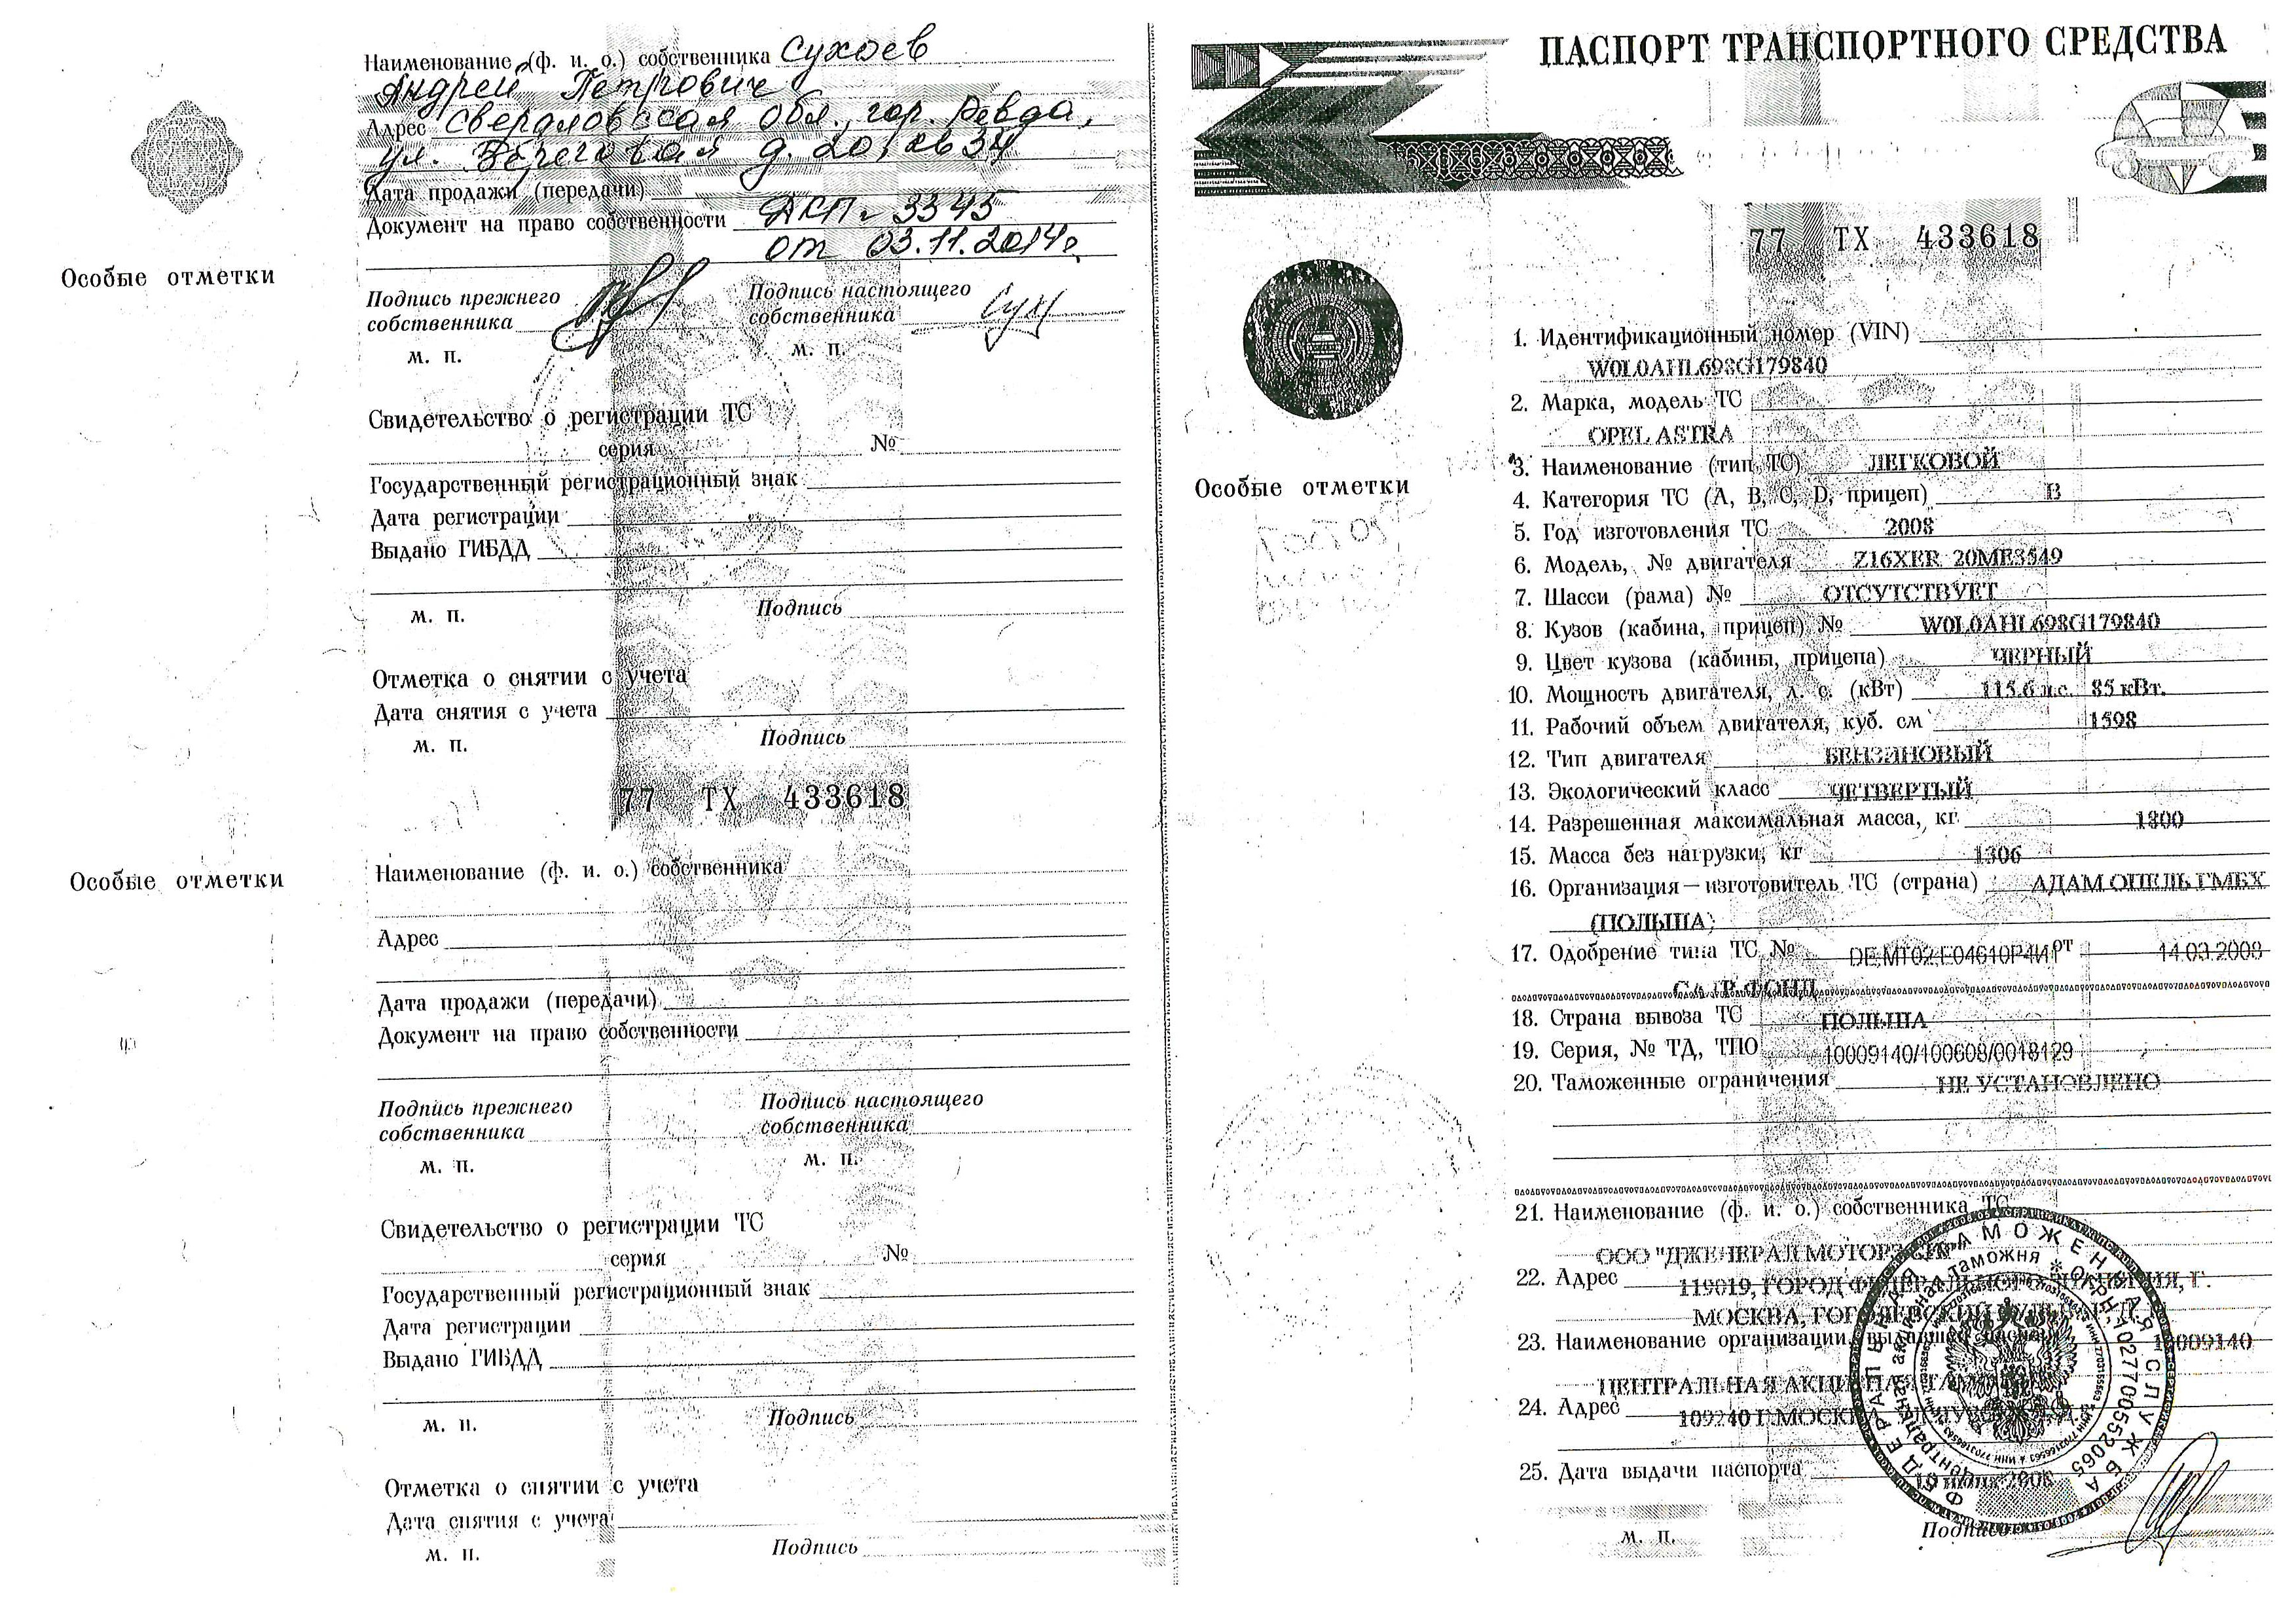 Наименование (ф. и. о.) собственника Сухоев
Андрей Петрович
Адрес Свердловская обл., гор. Ревда,
ул. Береговая д. 20, кв 34
Дата продажи (передачи)
Документ на право собственности ДКП - 3345
от 03.11.2014г.
Особые отметки
Подпись прежнего собственника
Подпись настоящего собственника Сух
м. п.
м. п.
Свидетельство о регистрации ТС
серия №
Государственный регистрационный знак
Дата регистрации
Выдано ГИБДД
м. п. Подпись
Отметка о снятии с учета
Дата снятия с учета
м. п. Подпись
77 ТХ 433618
Особые отметки
Наименование (ф. и. о.) собственника
Адрес
Дата продажи (передачи)
Документ на право собственности
Подпись прежнего собственника
Подпись настоящего собственника
м. п.
м. п.
Свидетельство о регистрации ТС
серия №
Государственный регистрационный знак
Дата регистрации
Выдано ГИБДД
м. п. Подпись
Отметка о снятии с учета
Дата снятия с учета
м. п. Подпись
ПАСПОРТ ТРАНСПОРТНОГО СРЕДСТВА
77 ТХ 433618
Особые отметки
1. Идентификационный номер (VIN)
W0L0AHL698G179840
2. Марка, модель ТС
OPEL ASTRA
3. Наименование (тип ТС) ЛЕГКОВОЙ
4. Категория ТС (А, В, С, D, прицеп) В
5. Год изготовления ТС 2008
6. Модель, № двигателя Z16XER 20ME3549
7. Шасси (рама) № ОТСУТСТВУЕТ
8. Кузов (кабина, прицеп) № W0L0AHL698G179840
9. Цвет кузова (кабины, прицепа) ЧЕРНЫЙ
10. Мощность двигателя, л. с. (кВт) 115.6 л.с. 85 кВт.
11. Рабочий объем двигателя, куб. см 1598
12. Тип двигателя БЕНЗИНОВЫЙ
13. Экологический класс ЧЕТВЕРТЫЙ
14. Разрешенная максимальная масса, кг 1800
15. Масса без нагрузки, кг 1306
16. Организация — изготовитель ТС (страна) АДАМ ОПЕЛЬ ГМБХ
(ПОЛЬША)
17. Одобрение типа ТС № от 14.03.2008
ФОНД
18. Страна вывоза ТС ПОЛЬША
19. Серия, № ТД, ТПО 10009140/100608/0018129
20. Таможенные ограничения НЕ УСТАНОВЛЕНО
21. Наименование (ф. и. о.) собственника ТС
ООО "ДЖЕНЕРАЛ МОТОРЗ СНГ"
22. Адрес 119019, ГОРОД ФЕДЕРАЛЬНОГО ЗНАЧЕНИЯ, Г.
МОСКВА, ГОГОЛЕВСКИЙ БУЛЬВАР, Д.
23. Наименование организации, выдавшей паспорт 10009140
ЦЕНТРАЛЬНАЯ АКЦИЗНАЯ ТАМОЖНЯ
24. Адрес 109240 Г.МОСКВА
25. Дата выдачи паспорта 2008
м. п. Подпись
ФЕДЕРАЛЬНАЯ ТАМОЖЕННАЯ СЛУЖБА
Центральная акцизная таможня * ОГРН 1027700552065